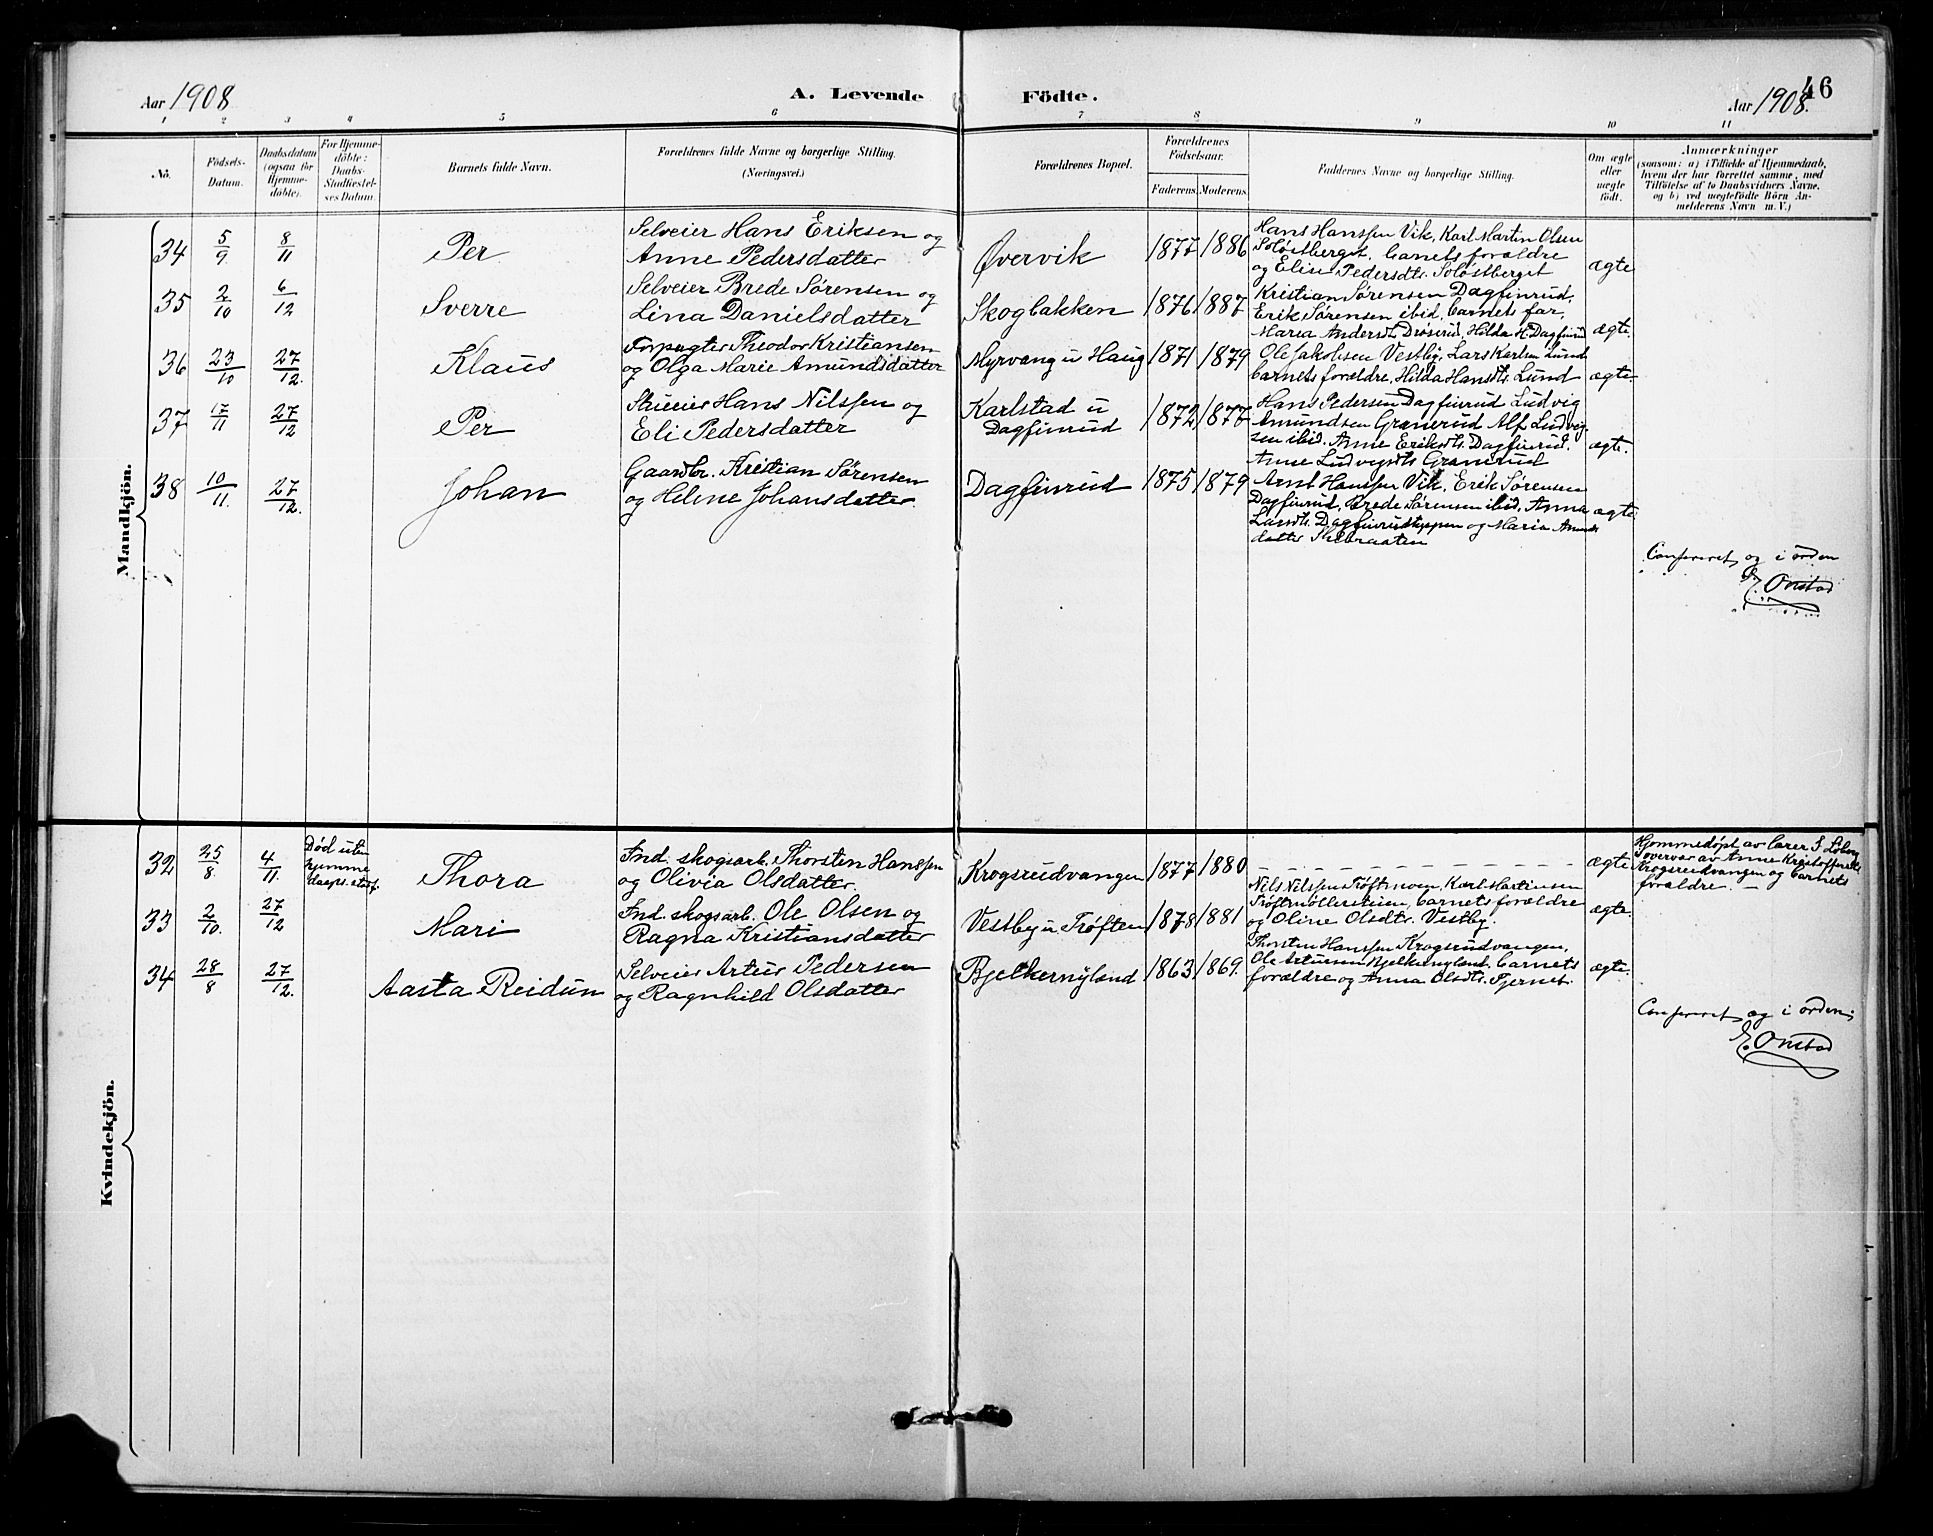 Aar 1908
A. Levende Födte.
Aar 1908.
46
1 2 3 4 5 6 7 8 9 10 11
No.
Födsels-
Datum.
Daabsdatum
(ogsaa for
Hjemme-
döbte).
For Hjemme-
döbte:
Daabs-
Stadfæstel-
ses Datum.
Barnets fulde Navn.
Forældrenes fulde Navne og borgerlige Stilling.
(Næringsvei.)
Forældrenes Bopæl.
Forældrenes
Födselsaar.
Faderens.
Moderens.
Faddernes Navne og borgerlige Stilling.
Om ægte
eller
uægte
födt.
Anmærkninger
(saasom: a) i Tilfælde af Hjemmedaab,
hvem der har forrettet samme, med
Tilföielse af to Daabsvidners Navne,
og b) ved uægtefödte Börn An-
melderens Navn m. V.)
Mandkjön.
34 5/9 8/11 Per
Selveier Hans Eriksen og
Anne Pedersdatter
Øvervik 1877 1886
Hans Hanssen Vik, Karl Martin Olsen
Soløstberget, barnets forældre
og Elise Pedersdt. Soløstberget
ægte
35 2/10 6/12 Sverre
Selveier Brede Sørensen og
Lina Danielsdatter
Skogbakken 1876 1887
Kristian Sørensen Dagfinrud,
Erik Sørensen ibid, barnets far,
Maria Andersdt. Drøserud, Hilda H. Dagfinrud
ægte.
36 23/10 27/12. Klaus
Forpagter Theodor Kristiansen
og Olga Marie Amundsdatter
Myrvang u Haug 1871 1879
Ole Jakobsen Vestby, Lars Karlsen Lund
barnets forældre, Hilda Hansdt. Lund
ægte
37 17/11 27/12 Per
Hans Nilssen og
Eli Pedersdatter
Karlstad u
Dagfinrud
1872 1877
Hans Pedersen Dagfinrud Ludvig
Amundsen Granerud Alf Ludvig-
sen ibid. Anne Eriksdt. Dagfinrud.
Anne Ludvigsdt. Granerud
ægte.
38 10/11. 27/12. Johan
Gaardbr. Kristian Sørensen
og Helene Johansdatter.
Dagfinrud 1875 1879
Arnt Hanssen Vik, Erik Sørensen
Dagfinrud, Brede Sørensen ibid, Anna
Larsdt. Dagfinrudteppen og Maria Amunds
datter
ægte.
Confereret og i orden
E. Onstad
Kvindekjön.
32 25/8 4/11.
Død uten
hjemme
daaps. stadf.
Thora
Ind. skogsarb. Thorsten Hanssen
og Olivia Olsdatter.
Krogsrudvangen 1877 1880
ægte
Hjemmedøpt av lærer
overvær av Anne Kristoffersdt.
Krogsrudvangen og barnets
forældre. —
33 2/10. 27/12 Mari
Ind. skogsarb. Ole Olsen og
Ragna Kristiansdatter
Vestby u. Trøften 1878 1881
Nils Nilssen Trøftmoen, Karl Martinsen
Trøftmøllersteien, barnets forældre
og Oline Olsdt. Vestby.
ægte.
34 28/8 27/12. Aasta Reidun
Selveier Artur Pedersen
og Ragnhild Olsdatter
Bjelkernyland 1863 1869.
Thorsten Hanssen Krogsrudvangen,
Ole Artursen Bjelkernyland, barnets
forældre og Anna Olsdt. Tjernet.
ægte.
Confereret og i orden;
E. Onstad